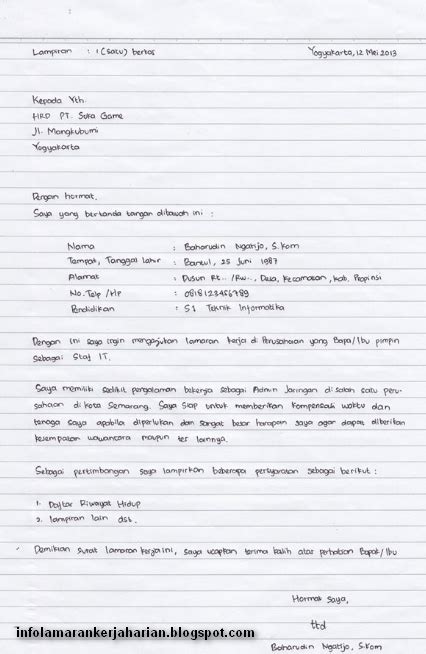 Lampiran : 1 (satu) berkas Yogyakarta, 12 Mei 2013
Kepada Yth
HRD PT. Suka Game
Jl. Mangkubumi
Yogyakarta
Dengan hormat,
Saya yang bertanda tangan dibawah ini :
Nama : Baharudin Ngatijo, S.Kom
Tempat, Tanggal lahir : Bantul, 25 Juni 1987
Alamat : Dusun Rt.. /Rw.., Desa, Kecamatan, Kab. Propinsi
No. Telp /Hp : 0818123456789
Pendidikan : S1 Teknik Informatika
Dengan ini saya ingin mengajukan lamaran kerja di Perusahaan yang Bapa/Ibu pimpin
sebagai Staf IT.
Saya memiliki sedikit pengalaman bekerja sebagai Admin Jaringan di salah satu peru-
sahaan di kota Semarang. Saya siap untuk memberikan kompensasi waktu dan
tenaga saya apabila diperlukan dan sangat besar harapan saya agar dapat diberikan
kesempatan wawancara maupun tes lainnya.
Sebagai pertimbangan saya lampirkan beberapa persyaratan sebagai berikut :
1. Daftar Riwayat Hidup
2. lampiran lain dst.
Demikian surat lamaran kerja ini, saya ucapkan terima kasih atas perhatian Bapak/Ibu
Hormat Saya,
ttd
Baharudin Ngatijo, S.Kom
infolamarankerjaharian.blogspot.com